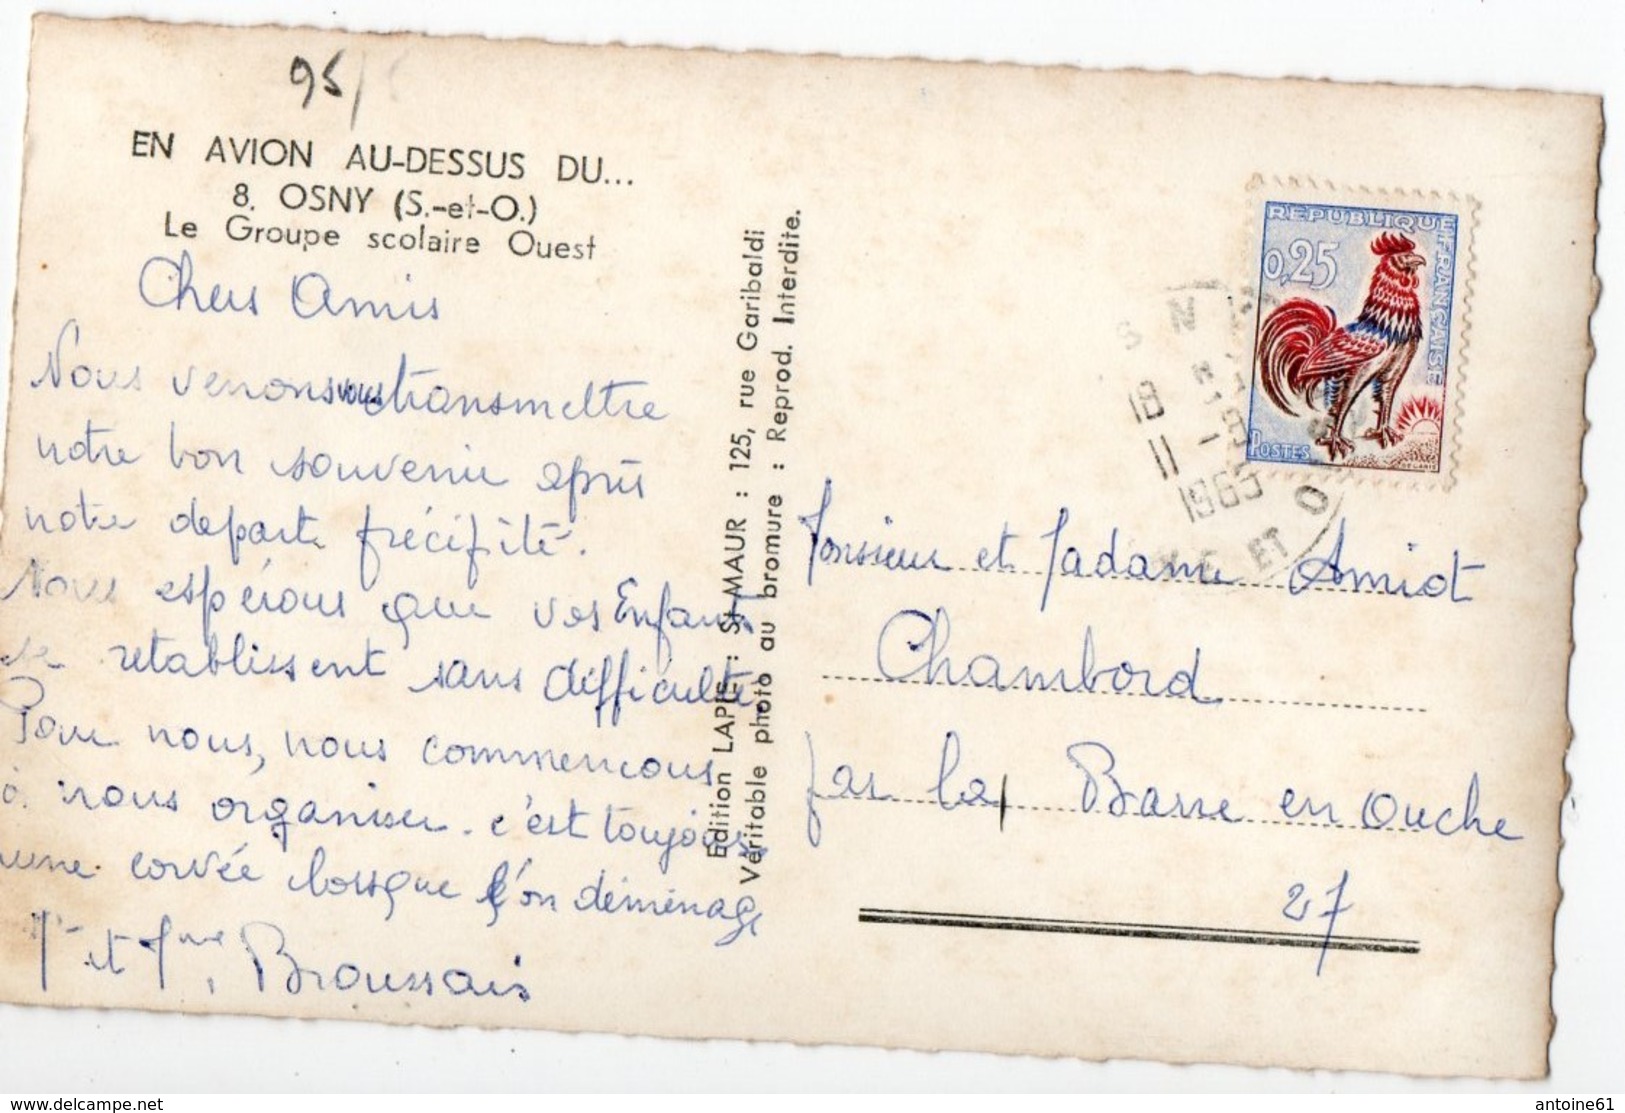 95/
EN AVION AU-DESSUS DU...
8. OSNY (S.-et-O.)
Le Groupe scolaire Ouest
Chers Amis
Nous venons vous transmettre
notre bon souvenir après
notre départ précipité.
Nous espérons que vos Enfants
se retablissent sans difficulté.
Pour nous, nous commencons
à nous organiser. c'est toujours
une corvée lorsque l'on déménage
Mr et Mme Broussais
Edition LAPIE : St-MAUR : 125, rue Garibaldi
Véritable photo au bromure : Reprod. Interdite.
REPUBLIQUE FRANÇAISE
0,25
POSTES
DECARIS
18
11 -
1965
ET O
Monsieur et Madame Amiot
Chambord
par la Barre en Ouche
27
delcampe.net
antoine61